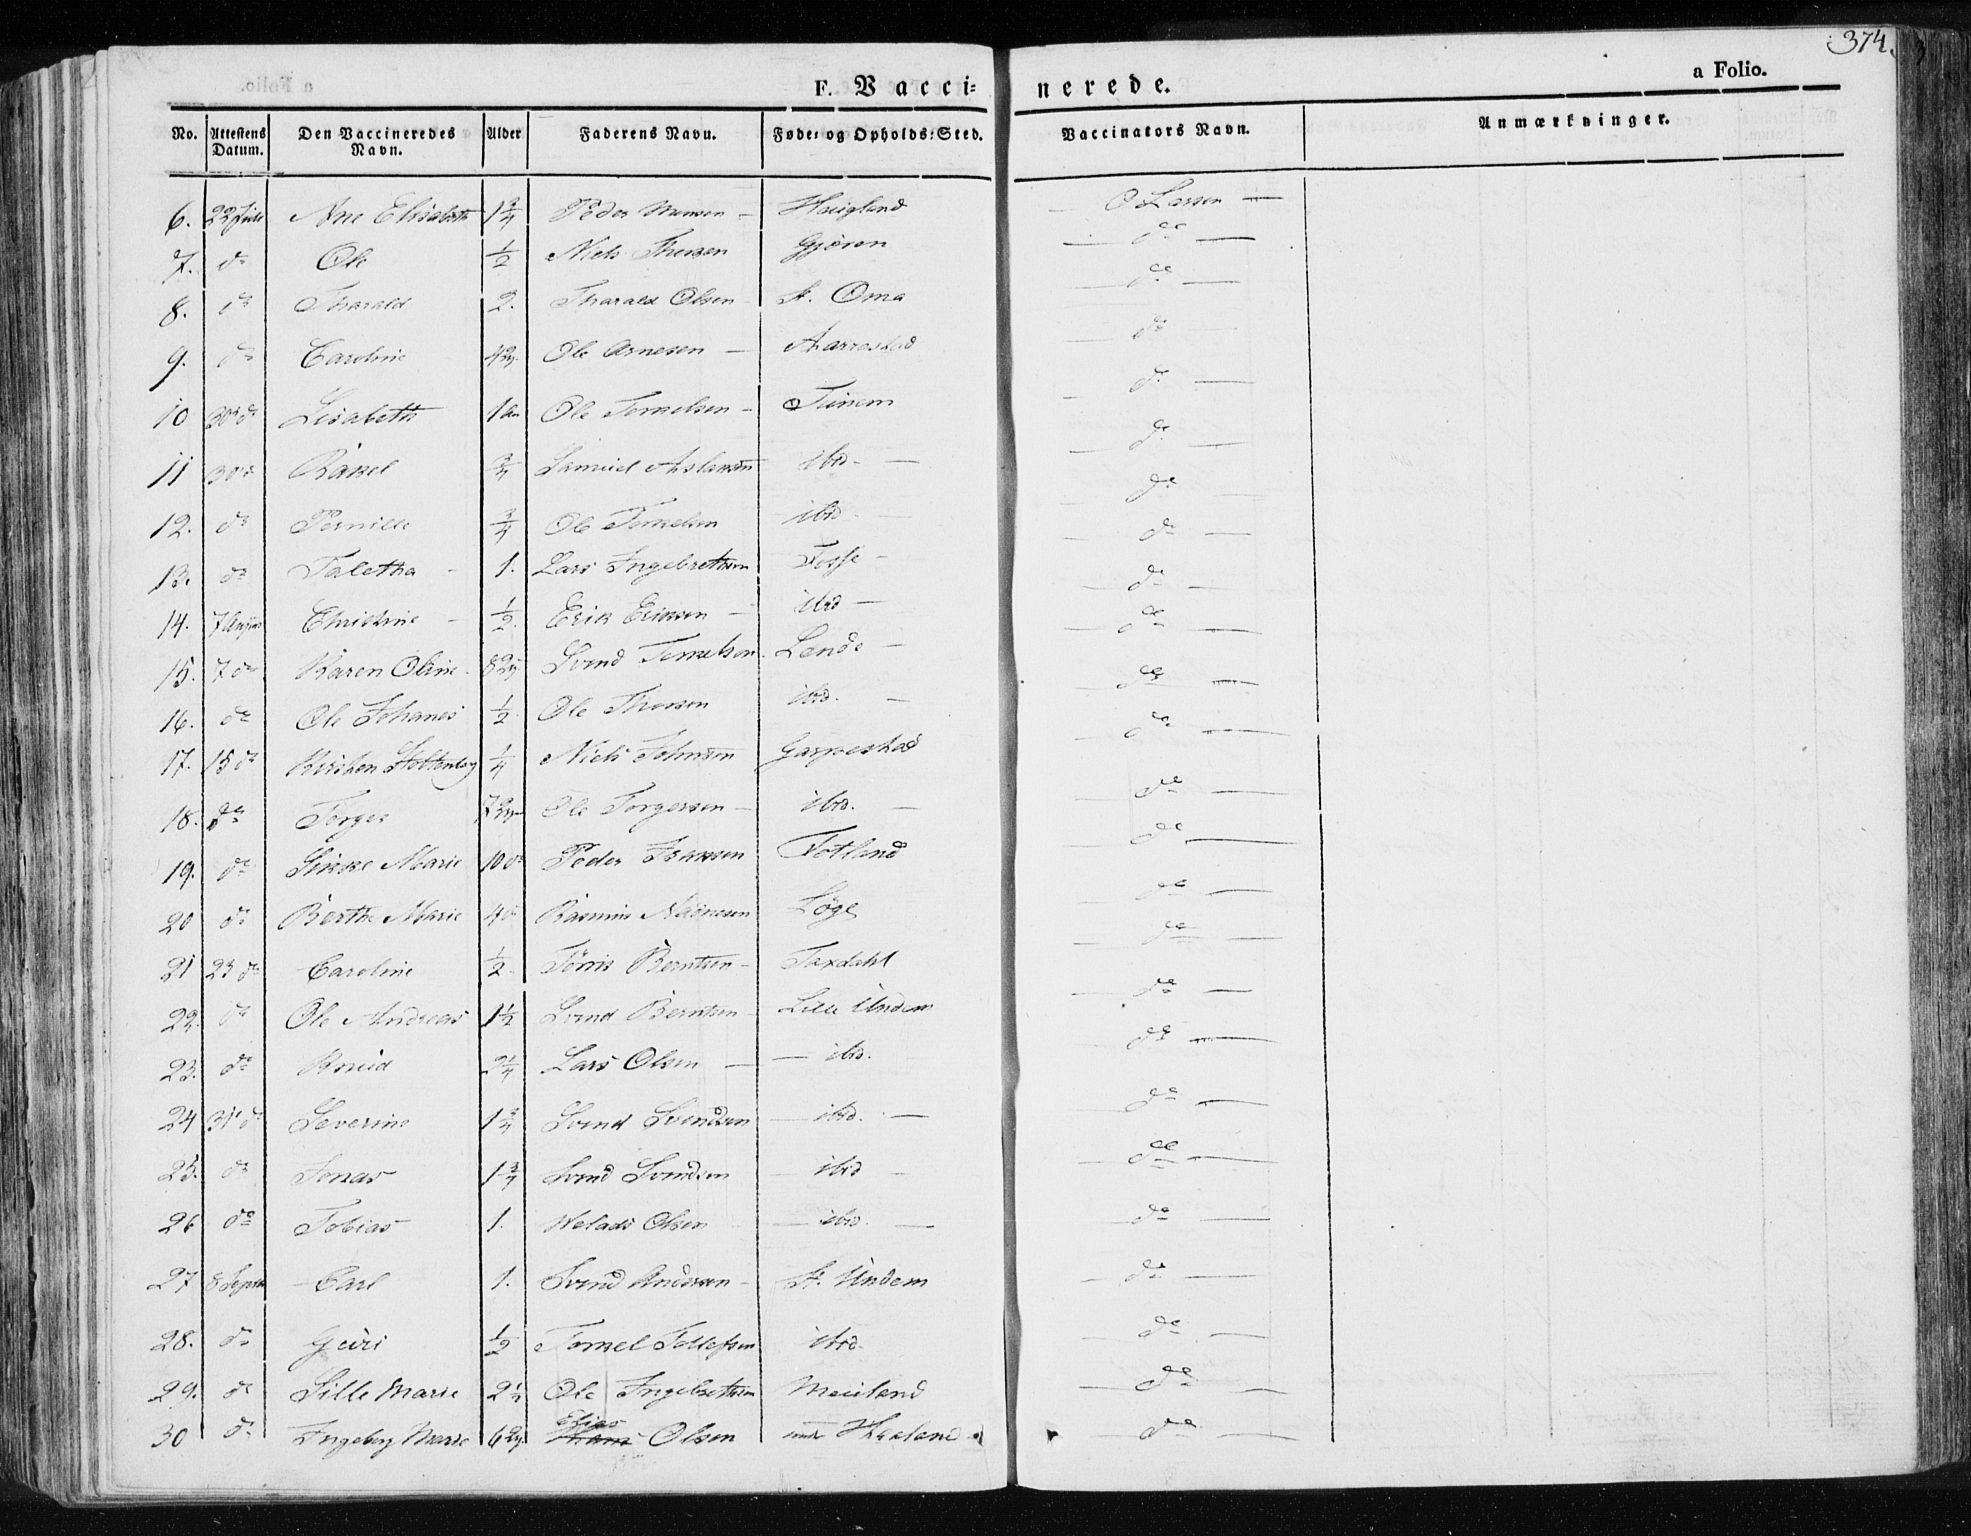 374.
F. Vacci=nerede. a Folio.
No. Attestens Datum. Den Vaccineredes Navn. Alder Faderens Navn. Føde= og Opholds=Sted. Vaccinators Navn. Anmærkninger.
6. 22 Julii Ane Elisabeth 1 3/4 Peder Haugland O Larsen —
7. do Ole 1/2 Niels Thorsen Gjøren do —
8. do Tharald 2. Tharald Olsen St. Oma do —
9. do Caroline Ole Arnesen — Aarrestad do —
10 30 do Lisabeth 1 Ole Tornelsen — Tunem do —
11 30 do Rakel 3/4 Samuel Aslaksen ibid. — do —
12. do Pernille 3/4 Ole Tornelsen ibid. — do —
13. do Taletha — 1. Lars Ingebrethsen Fosse — do —
14. 7 Christine — 1/2. Erik Eriksen — ibid — do —
15. 7 do Karen Oline Svend Tornelsen Lende — do —
16. do Ole Johanes 1/2 Ole Thorsen ibid. — do —
17. 15 do Kirsten Stoltenberg 1/4 Niels Johnsen Garpestad do —
18. do Torger Ole Torgersen — ibid. — do —
19. do Sikke Marie 10 do Peder Isaksen Fotland do —
20 do Berthe Marie 4 do Rasmus Løge do —
21 23 do Caroline 1/2. Tørris Berntsen — Taxdahl do —
22. do Ole Andreas 1 1/2 Svend Berntsen — Lille Undem do —
23. do Knud 2 1/4 Lars Olsen — — ibid. do —
24 31 do Severine 1 3/4 Svend Svendsen — ibid. — do —
25. do Jonas 1 3/4 Svend Svendsen — ibid — do —
26 do Tobias 1. Olsen — ibid. — do —
27 8 Septem Carl 1. Svend Andersen — St. Undem do —
28. do Guri 1/2 Tornel Tollefsen ibid. do —
29. do Sille Marie Ole Ingebrethsen Meiland do —
30 do Ingeborg Marie Elias Olsen Haaland do —